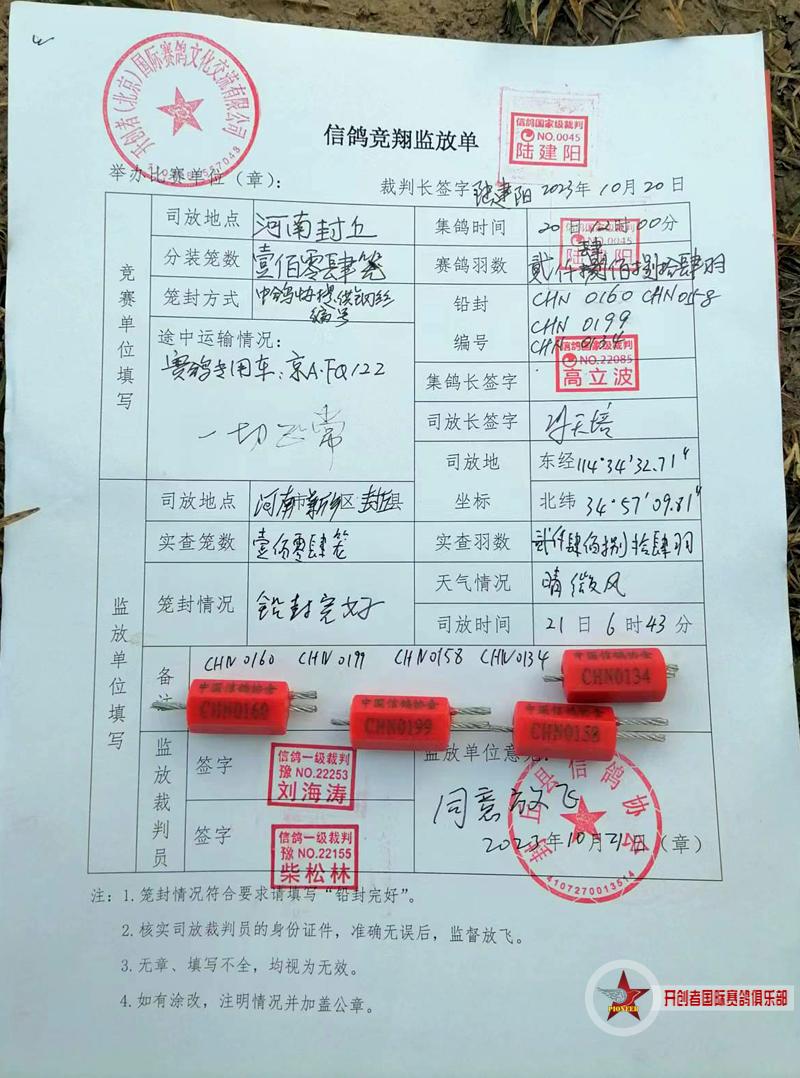 开创者（北京）国际赛鸽文化交流有限公司
信鸽竞翔监放单
信鸽国家级裁判
NO.0045
陆建阳
举办比赛单位（章）：
裁判长签字 陆建阳 2023年10月20日
竞赛单位填写
司放地点 河南封丘
集鸽时间 20日12时00分
分装笼数 壹佰零肆笼
赛鸽羽数 贰仟肆佰捌拾肆羽
笼封方式 中鸽协提供钢丝编号
铅封编号 CHN 0160 CHN 0158
CHN 0199
CHN 0134
途中运输情况：
赛鸽专用车：京A·FQ122
一切正常
集鸽长签字
信鸽国家级裁判
NO.22085
高立波
司放长签字
司放地坐标 东经 114°34′32.71″
北纬 34°57′09.81″
监放单位填写
司放地点 河南市新乡区封丘县
实查笼数 壹佰零肆笼
实查羽数 贰仟肆佰捌拾肆羽
笼封情况 铅封完好
天气情况 晴 微风
司放时间 21日6时43分
备注 CHN 0160 CHN 0199 CHN 0158 CHN 0134
中国信鸽协会
CHN0160
中国信鸽协会
CHN0199
中国信鸽协会
CHN0158
中国信鸽协会
CHN0134
监放裁判员
签字
信鸽一级裁判
豫 NO.22253
刘海涛
签字
信鸽一级裁判
豫 NO.22155
柴松林
监放单位意见：
同意放飞
2023年10月21日（章）
封丘县信鸽协会
4107270013514
注：1.笼封情况符合要求请填写“铅封完好”。
2.核实司放裁判员的身份证件，准确无误后，监督放飞。
3.无章、填写不全，均视为无效。
4.如有涂改，注明情况并加盖公章。
PIONEER
开创者国际赛鸽俱乐部